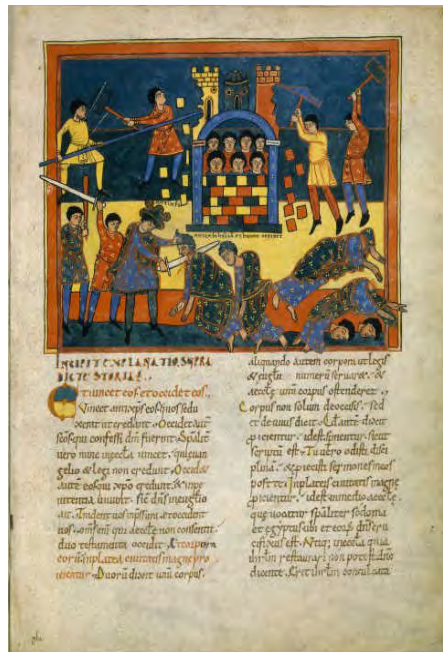 INCIPIT EXPLANATIO SUPRA
DICTE STORIAE
Et uincet eos et occidet eos.
Vincet antixps eos quos sedu
xerit ut credant. Occidet au
eos qui confessi dnm fuerint. Spaliter
uero nunc in eccla uincet. qui euan
gelio et legi non credunt. Occidet
autem eos qui xpo credunt et in peni
tentia uiuunt. sic dns in euglio
ait. Tradent uos in pressura et occident
uos. omnem qui aeccle non consentit
duo testamenta occidit. Et corpora
eorum in platea ciuitatis magne pro
icientur. Duorum dicit unum corpus.
aliquando autem corpora ut legis
et euglii numerum seruaret. et
aeccle unum corpus ostenderet.
Corpus non solum de occisis. sed
et de uiuis dicit. Quod ante dicit
proicientur. idest spernentur. sicut
scriptum est. Tu uero odisti disci
plinam. et proiecisti sermones meos
post te. In platea ciuitatis magne
proicientur. idest in medio aeccle.
que uocatur spaliter sodoma
et egyptus ubi et eorum dns cru
cifixus est. in eccla quia
ihrlm restaurari non potest dno
dicente. Erit ihrlm conculcata